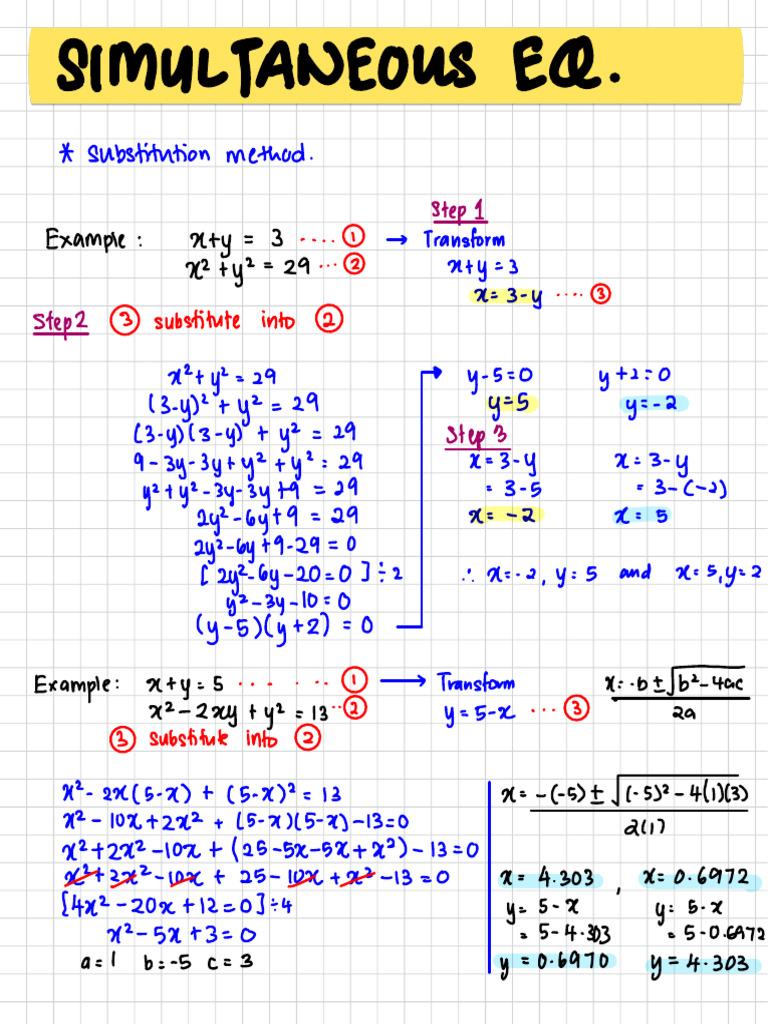 SIMULTANEOUS EQ.
* substitution method.
Step 1
Example : x+y = 3 ..... ① → Transform
x² + y² = 29 ... ② x+y = 3
x = 3-y .... ③
Step 2 ③ substitute into ②
x² + y² = 29
(3-y)² + y² = 29
(3-y)(3-y) + y² = 29
9 - 3y - 3y + y² + y² = 29
y² + y² - 3y - 3y + 9 = 29
2y² - 6y + 9 = 29
2y² - 6y + 9 - 29 = 0
[ 2y² - 6y - 20 = 0 ] ÷ 2
y² - 3y - 10 = 0
(y-5)(y+2) = 0
y - 5 = 0 y + 2 = 0
y = 5 y = -2
Step 3
x = 3-y x = 3-y
= 3-5 = 3-(-2)
x = -2 x = 5
∴ x = -2, y = 5 and x = 5, y = 2
Example: x+y = 5 ... ... ① → Transform x = -b ± √b² - 4ac
x² - 2xy + y² = 13 .. ② y = 5-x ... ③ 2a
③ substitute into ②
x² - 2x(5-x) + (5-x)² = 13
x² - 10x + 2x² + (5-x)(5-x) - 13 = 0
x² + 2x² - 10x + (25 - 5x - 5x + x²) - 13 = 0
x² + 2x² - 10x + 25 - 10x + x² - 13 = 0
[4x² - 20x + 12 = 0] ÷ 4
x² - 5x + 3 = 0
a = 1 b = -5 c = 3
x = -(-5) ± √(-5)² - 4(1)(3)
2(1)
x = 4.303 , x = 0.6972
y = 5 - x y = 5 - x
= 5 - 4.303 = 5 - 0.6972
y = 0.6970 y = 4.303